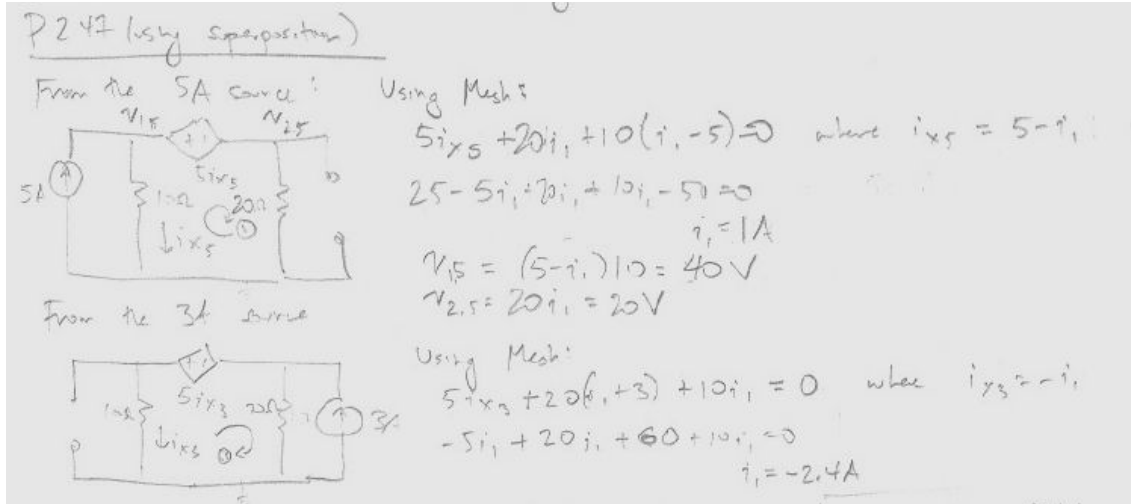 P 2 47 (using superposition)
From the 5A source:
v₁₅
v₂₅
5A
5iₓ₅
10Ω
20Ω
↓iₓ₅
1
Using Mesh:
5iₓ₅ + 20i₁ + 10(i₁ - 5) = 0 where iₓ₅ = 5 - i₁
25 - 5i₁ + 20i₁ + 10i₁ - 50 = 0
i₁ = 1A
v₁₅ = (5 - i₁)10 = 40V
v₂.₅ = 20i₁ = 20V
From the 3A source
5iₓ₃
10Ω
20Ω
↓iₓ₃
Using Mesh:
5iₓ₃ + 20(i₁ + 3) + 10i₁ = 0 where iₓ₃ = -i₁
-5i₁ + 20i₁ + 60 + 10i₁ = 0
i₁ = -2.4A